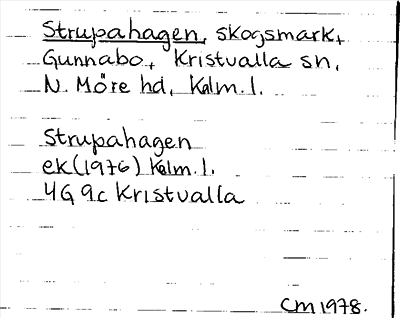 Strupahagen, skogsmark,
Gunnabo, Kristvalla sn,
N. Möre hd, Kalm. l.
Strupahagen
ek (1976) Kalm. l.
4G 9c Kristvalla
CM 1978.